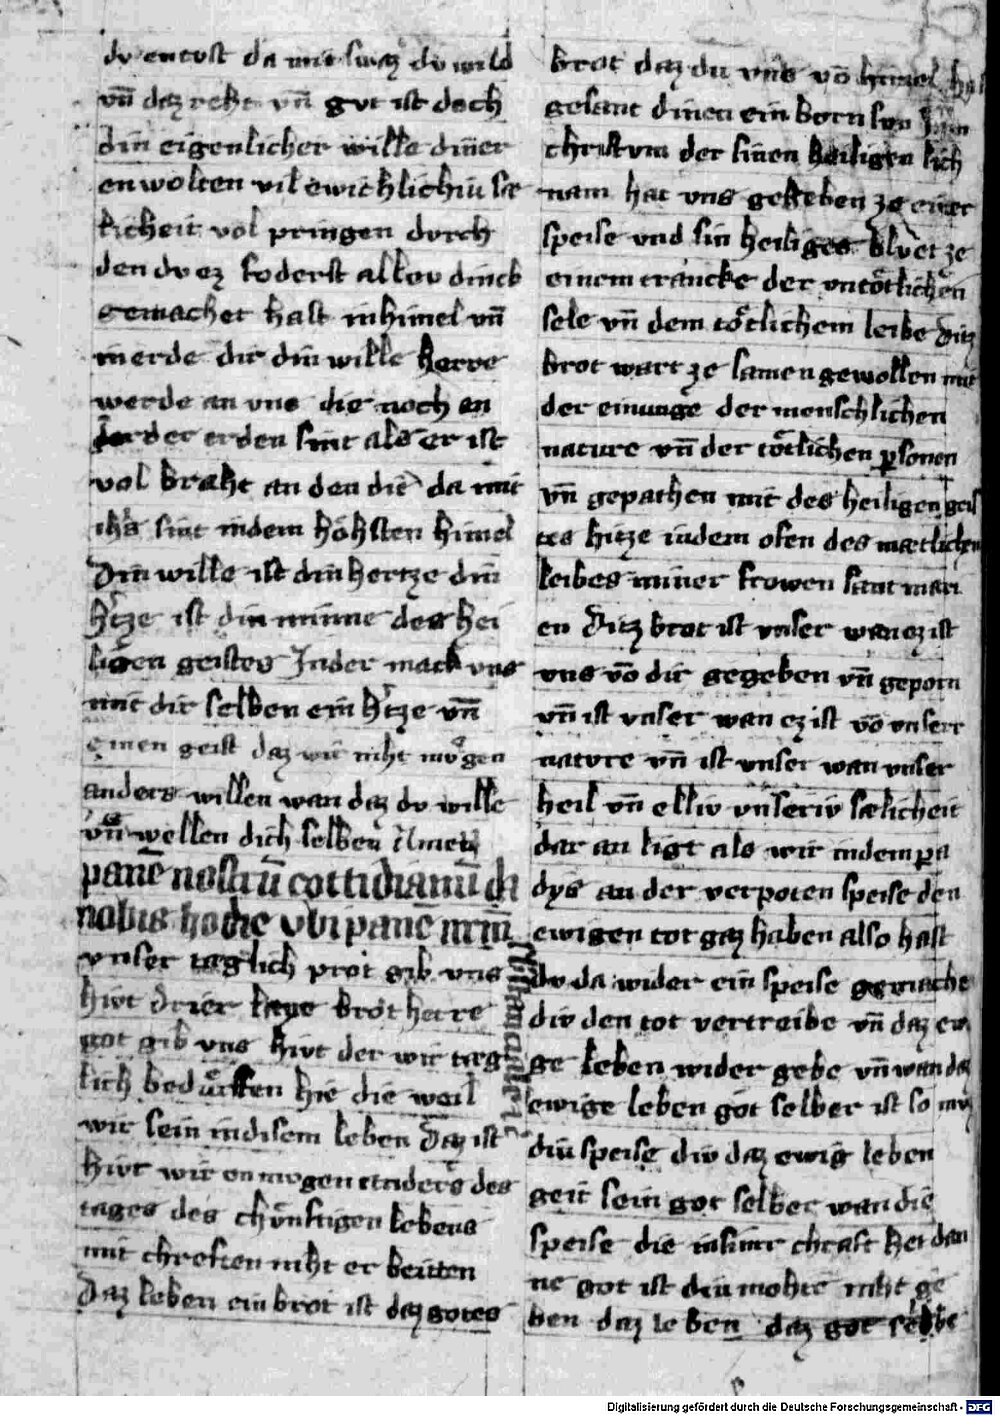 dv entvst da mit swaz dv wild
vn̄ daz reht vn̄ gvt ist doch
din eigenlicher wille diner
en wolten vil ewichlichiu sæ
licheit vol pringen dvrch
den dv ez foderst allev dinch
gemachet hast in himel vn̄
in erde dir din wille herre
werde an vns die noch an
der erden sint als er ist
vol braht an den die da mit
sint in dem hohsten himel
Din wille ist din hertze din
h'tze ist din minne des hei
ligen geistes In der mach vns
mit dir selben ein h'tze vn̄
einen geist daz wir niht mvgen
anders willen wan daz dv wille
vn̄ wellen dich selben Amen
panē nostrū cottidianū da
nobis hodie vbi panē nrm̄
vnser tæglich prot gib vns
hivt drier laye brot herre
got gib vns hivt der wir tæg
lich bedurffen hie die weil
wir sein in disem leben Daz ist
hivt wir en mvgen anders des
tages des chvnftigen lebens
mit chreften niht er beitten
Daz leben ein brot ist daz gotes
brot daz du vns vō himel hast
gesant dinen ein born svn
christvm der sinen heiligen lich
nam hat vns gegeben ze einer
speise vnd sin heiliges blvet ze
einem trancke der vntotlichen
sele vn̄ dem totlichem leibe Ditz
brot wart ze samen gewollen mit
der einunge der menschlichen
nature vn̄ der totlichen ꝑsonen
vn̄ gepachen mit des heiligen geis
tes hitze in dem ofen des mætlichen
leibes miner frowen sant mari
en Ditz brot ist vnser wan ez ist
vns vō dir gegeben vn̄ geporn
vn̄ ist vnser wan ez ist vō vnserr
natvre vn̄ ist vnser wan vnser
heil vn̄ elliv vnseriv sælicheit
dar an ligt als wir in dem pa
dys an der verpoten speise den
ewigen tot gaz haben also hast
dv da wider ein speise gemachet
div den tot vertreibe vn̄ daz ewi
ge leben wider gebe vn̄ wan daz
ewige leben got selber ist so mvz
diu speise div daz ewig leben
geit sein got selber wan die
speise die in sinir chraft het dan
ne got ist diu mohte niht ge
ben daz leben daz got selbe